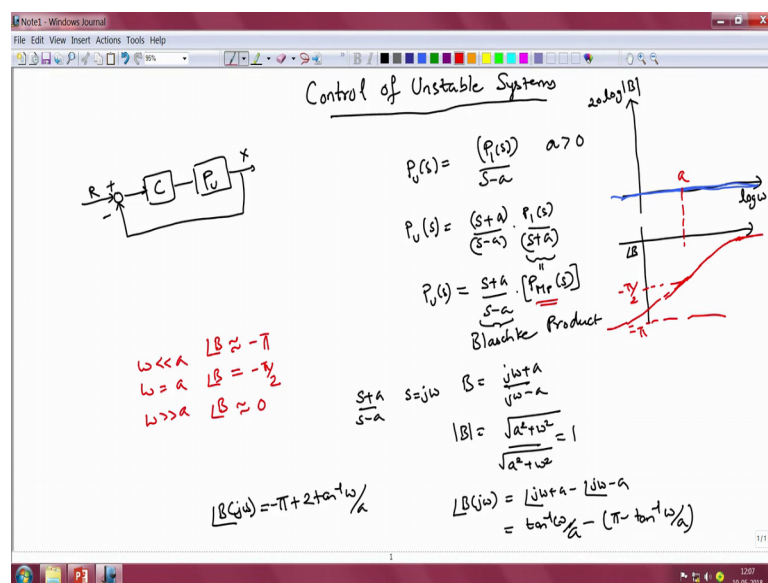 Note1 - Windows Journal
File Edit View Insert Actions Tools Help
95%
Control of Unstable Systems
20log|B|
R + - C Pᵤ X
Pᵤ(s) = (P₁(s))/(s-a) a>0
a
logω
Pᵤ(s) = (s+a)/(s-a) · P₁(s)/(s+a)
∠B
=
Pᵤ(s) = s+a/s-a · [P_MP(s)]
-π/2
Blaschke Product
-π
ω<<a ∠B ≈ -π
ω=a ∠B = -π/2
ω>>a ∠B ≈ 0
s+a/s-a s=jω B = jω+a/jω-a
|B| = √(a²+ω²)/√(a²+ω²) = 1
∠B(jω) = -π+2tan⁻¹ω/a
∠B(jω) = ∠jω+a - ∠jω-a
= tan⁻¹ω/a - (π-tan⁻¹ω/a)
1/1
1
12:07
10-05-2018